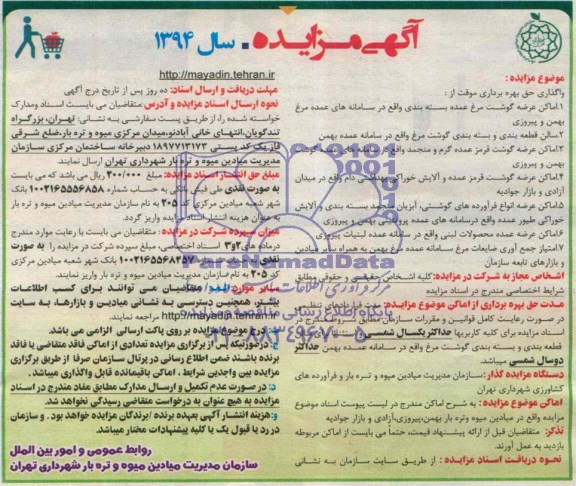 آگهی مزایده . سال ۱۳۹۴
موضوع مزایده :
واگذاری حق بهره برداری موقت از :
۱.اماکن عرضه گوشت مرغ عمده بسته بندی واقع در سامانه های عمده مرغ
بهمن و پیروزی
۲.سالن قطعه بندی و بسته بندی گوشت مرغ واقع در سامانه عمده بهمن
۳.اماکن عرضه گوشت قرمز عمده گرم و منجمد واقع در
بهمن و پیروزی
۴.اماکن عرضه گوشت قرمز عمده و آلایش خوراکی دام واقع در میدان
آزادی و بازار جوادیه
۵.اماکن عرضه انواع فرآورده های گوشتی، آبزیان منجمد بسته بندی و آلایش
خوراکی طیور عمده واقع درسامانه های عمده پروتئینی بهمن و پیروزی
۶.اماکن عرضه عمده محصولات لبنی واقع در سامانه عمده لبنیات پیروزی
۷.امتیاز جمع آوری ضایعات مرغ سامانه عمده مرغ بهمن به همراه سایر میادین
و بازارهای تابعه سازمان
اشخاص مجاز به شرکت در مزایده: کلیه اشخاص حقیقی و حقوقی مطابق
شرایط اختصاصی مندرج در اسناد مزایده
مدت حق بهره برداری از اماکن موضوع مزایده:
در صورت رعایت کامل قوانین و مقررات سازمان مطابق
اسناد مزایده برای کلیه کاربریها حداکثر یکسال شمسی
قطعه بندی و بسته بندی گوشت مرغ واقع در سامانه عمده بهمن حداکثر
دوسال شمسی میباشد.
دستگاه مزایده گذار: سازمان مدیریت میادین میوه و تره بار و فرآورده های
کشاورزی شهرداری تهران
اماکن موضوع مزایده : به شرح اماکن مندرج در لیست پیوست اسناد موضوع
مزایده واقع در میادین میوه وتره بار بهمن،پیروزی،آزادی و بازار جوادیه
تذکر: متقاضیان قبل از ارائه پیشنهاد قیمت، حتماً می بایست از اماکن مربوطه
بازدید به عمل آورند.
نحوه دریافت اسناد مزایده : از طریق سایت سازمان به نشانی
http://mayadin.tehran.ir
مهلت دریافت و ارسال اسناد: ده روز پس از تاریخ درج آگهی
نحوه ارسال اسناد مزایده و آدرس: متقاضیان می بایست اسناد ومدارک
خواسته شده را، از طریق پست سفارشی به نشانی: تهران، بزرگراه
تندگویان،انتهای خانی آبادنو،میدان مرکزی میوه و تره بار،ضلع شرقی
فاز یک کد پستی ۱۸۹۷۷۱۳۱۷۳ دبیرخانه ساختمان مرکزی سازمان
مدیریت میادین میوه و تره بار شهرداری تهران ارسال نمایند.
مبلغ حق انتشار اسناد مزایده: مبلغ ۲۰۰/۰۰۰ ریال می باشد که می بایست
به صورت نقدی طی فیش بانکی به حساب شماره ۱۰۰۲۱۶۵۵۵۶۸۵۸ بانک
شهر شعبه میادین مرکزی کد ۲۰۵ به نام سازمان مدیریت میادین میوه و تره بار
به عنوان هزینه انتشار اسناد مزایده واریز گردد.
میزان سپرده شرکت در مزایده : متقاضیان می بایست با رعایت موارد مندرج
درماده های ۲و۳ اسناد اختصاصی، مبلغ سپرده شرکت در مزایده را به صورت
نقدی به حساب ۱۰۰۲۱۶۵۵۶۸۴۵۷ بانک شهر شعبه میادین مرکزی
کد ۲۰۵ به نام سازمان مدیریت میادین میوه و تره بار واریز نمایند.
سایر موارد: الف: متقاضیان می توانند برای کسب اطلاعات
بیشتر، همچنین دسترسی به نشانی میادین و بازارها، به سایت
http://mayadin.tehran.ir مراجعه نمایند.
ب: درج موضوع مزایده بر روی پاکت ارسالی الزامی می باشد.
ج: درصورتیکه پس از برگزاری مزایده تعدادی از اماکن فاقد متقاضی یا فاقد
برنده باشند ضمن اطلاع رسانی در پرتال سازمان صرفا از طریق برگزاری
مزایده بین واجدین شرایط ، اماکن باقیمانده قابل واگذاری میباشد .
د: در صورت عدم تکمیل و ارسال مدارک مطابق مفاد مندرج در اسناد
مزایده به هیچ عنوان به درخواست متقاضی رسیدگی نخواهد شد.
و:هزینه انتشار آگهی بعهده برنده /برندگان مزایده خواهد بود . و سازمان
در رد یا قبول یک یا کلیه پیشنهادات مختار میباشد.
روابط عمومی و امور بین الملل
سازمان مدیریت میادین میوه و تره بار شهرداری تهران
ParsNamadData
پایگاه اطلاع رسانی مناقصه و مزایده